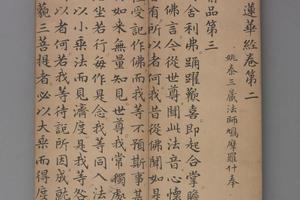 蓮華經卷第二
姚秦三藏法師鳩摩羅什奉
品第三
舍利弗踊躍歡喜即起合掌瞻
佛言今從世尊聞此法音心懷
有所以者何我昔從佛聞如是
受記作佛而我等不預斯事甚
如來無量知見世尊我常獨處
坐若行每作是念我等同入法
以小乘法而見濟度是我等咎
以者何若我等待說所因成就
三菩提者必以大乘而得度